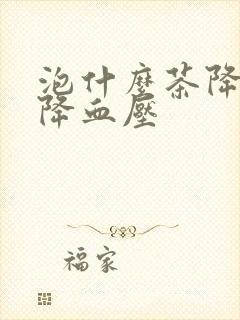 泡什麼茶降
降血壓
福家